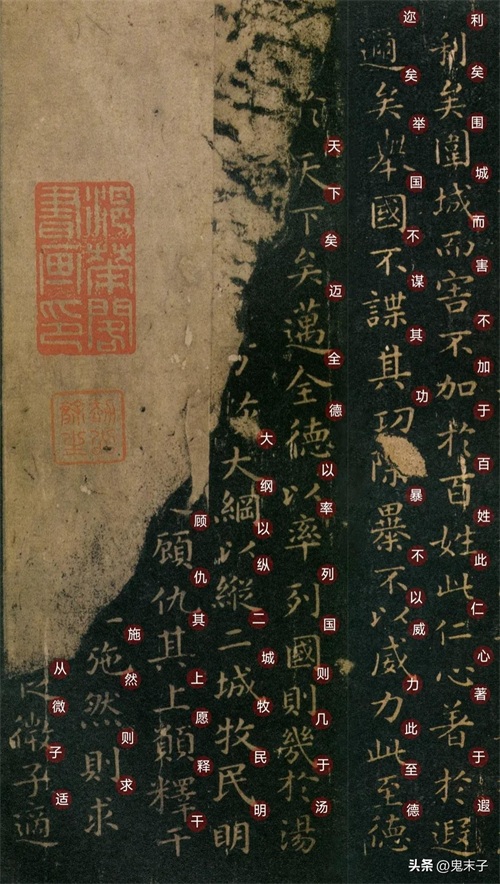 利矣围城而害不加于百姓此仁心著于遐
利矣圍城而害不加於百姓此仁心著於遐
迩矣举国不谋其功暴不以威力此至德
邇矣舉國不謀其功除暴不以威力此至德
天下矣迈全德以率列国则几于汤
天下矣邁全德以率列國則幾於湯
大纲以纵二城牧民明
大綱以縱二城牧民明
顾仇其上愿释干
顧仇其上願釋干
施然则求
施然則求
从微子适
從微子適
閣
書畫印
头条 @鬼末子